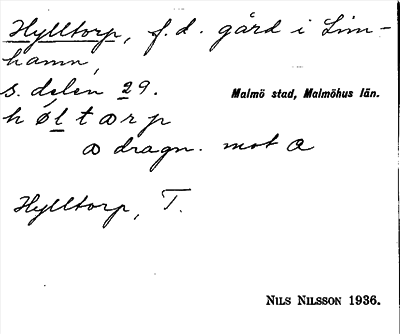 Hylltorp, f.d. gård i Lim-
hamn,
s. delen 29.
Malmö stad, Malmöhus län.
h ø l t ɑ r p
ɑ dragn. mot a
Hylltorp, T.
NILS NILSSON 1936.